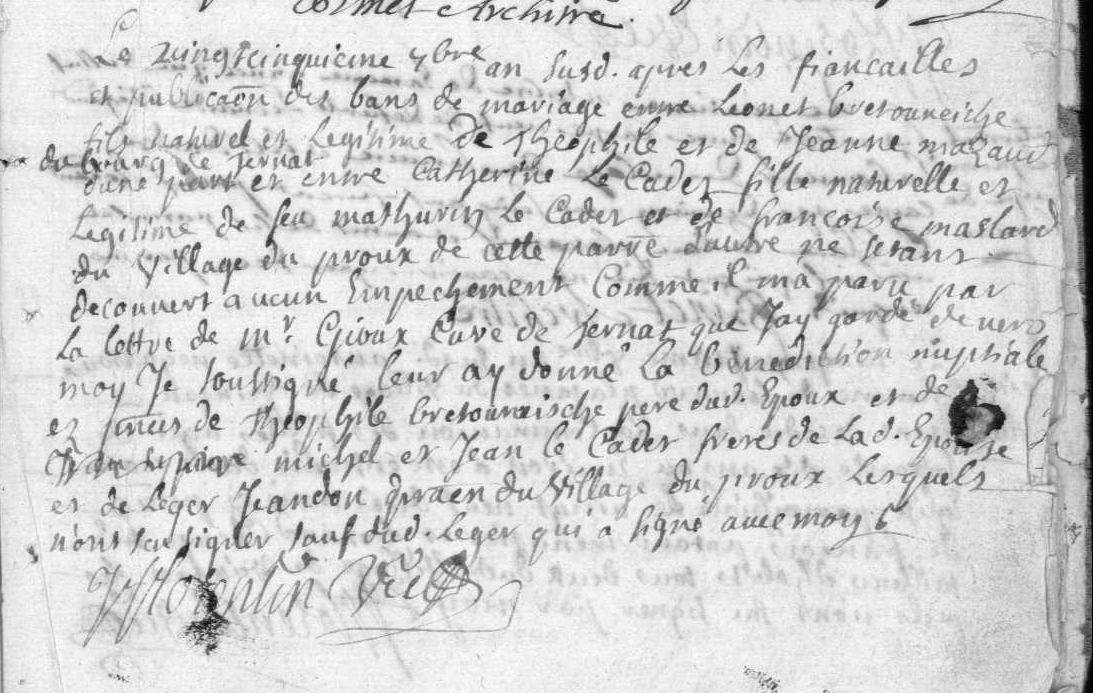 Cornet Architre.
Le vingtcinquieme 7bre an susd. apres les fiancailles
et publicaon des bans de mariage entre Leonet bretouneiche
fils naturel et Legitime de Theophile et de Jeanne mazaud
du bourg de Jernat
dune part et entre Catherine Le Cadet fille naturelle et
Legitime de feu mathurin Le Cadet et de francoise maslard
du village du proux de cette parre d'autre ne setant
decouvert aucun Empechement Comme il ma paru par
la lettre de mr Gioux Cure de Jernat que Jay gardé devers
moy Je soussigné leur ay donné la benediction nuptiale
es pnces de theophile bretouneische pere dud. Epoux et de
michel et Jean le Cadet freres de Lad. Epouse
et de Leger Jeandon du village du proux Lesquels
n'ont scu signer sauf dud. Leger qui a signé avec moy